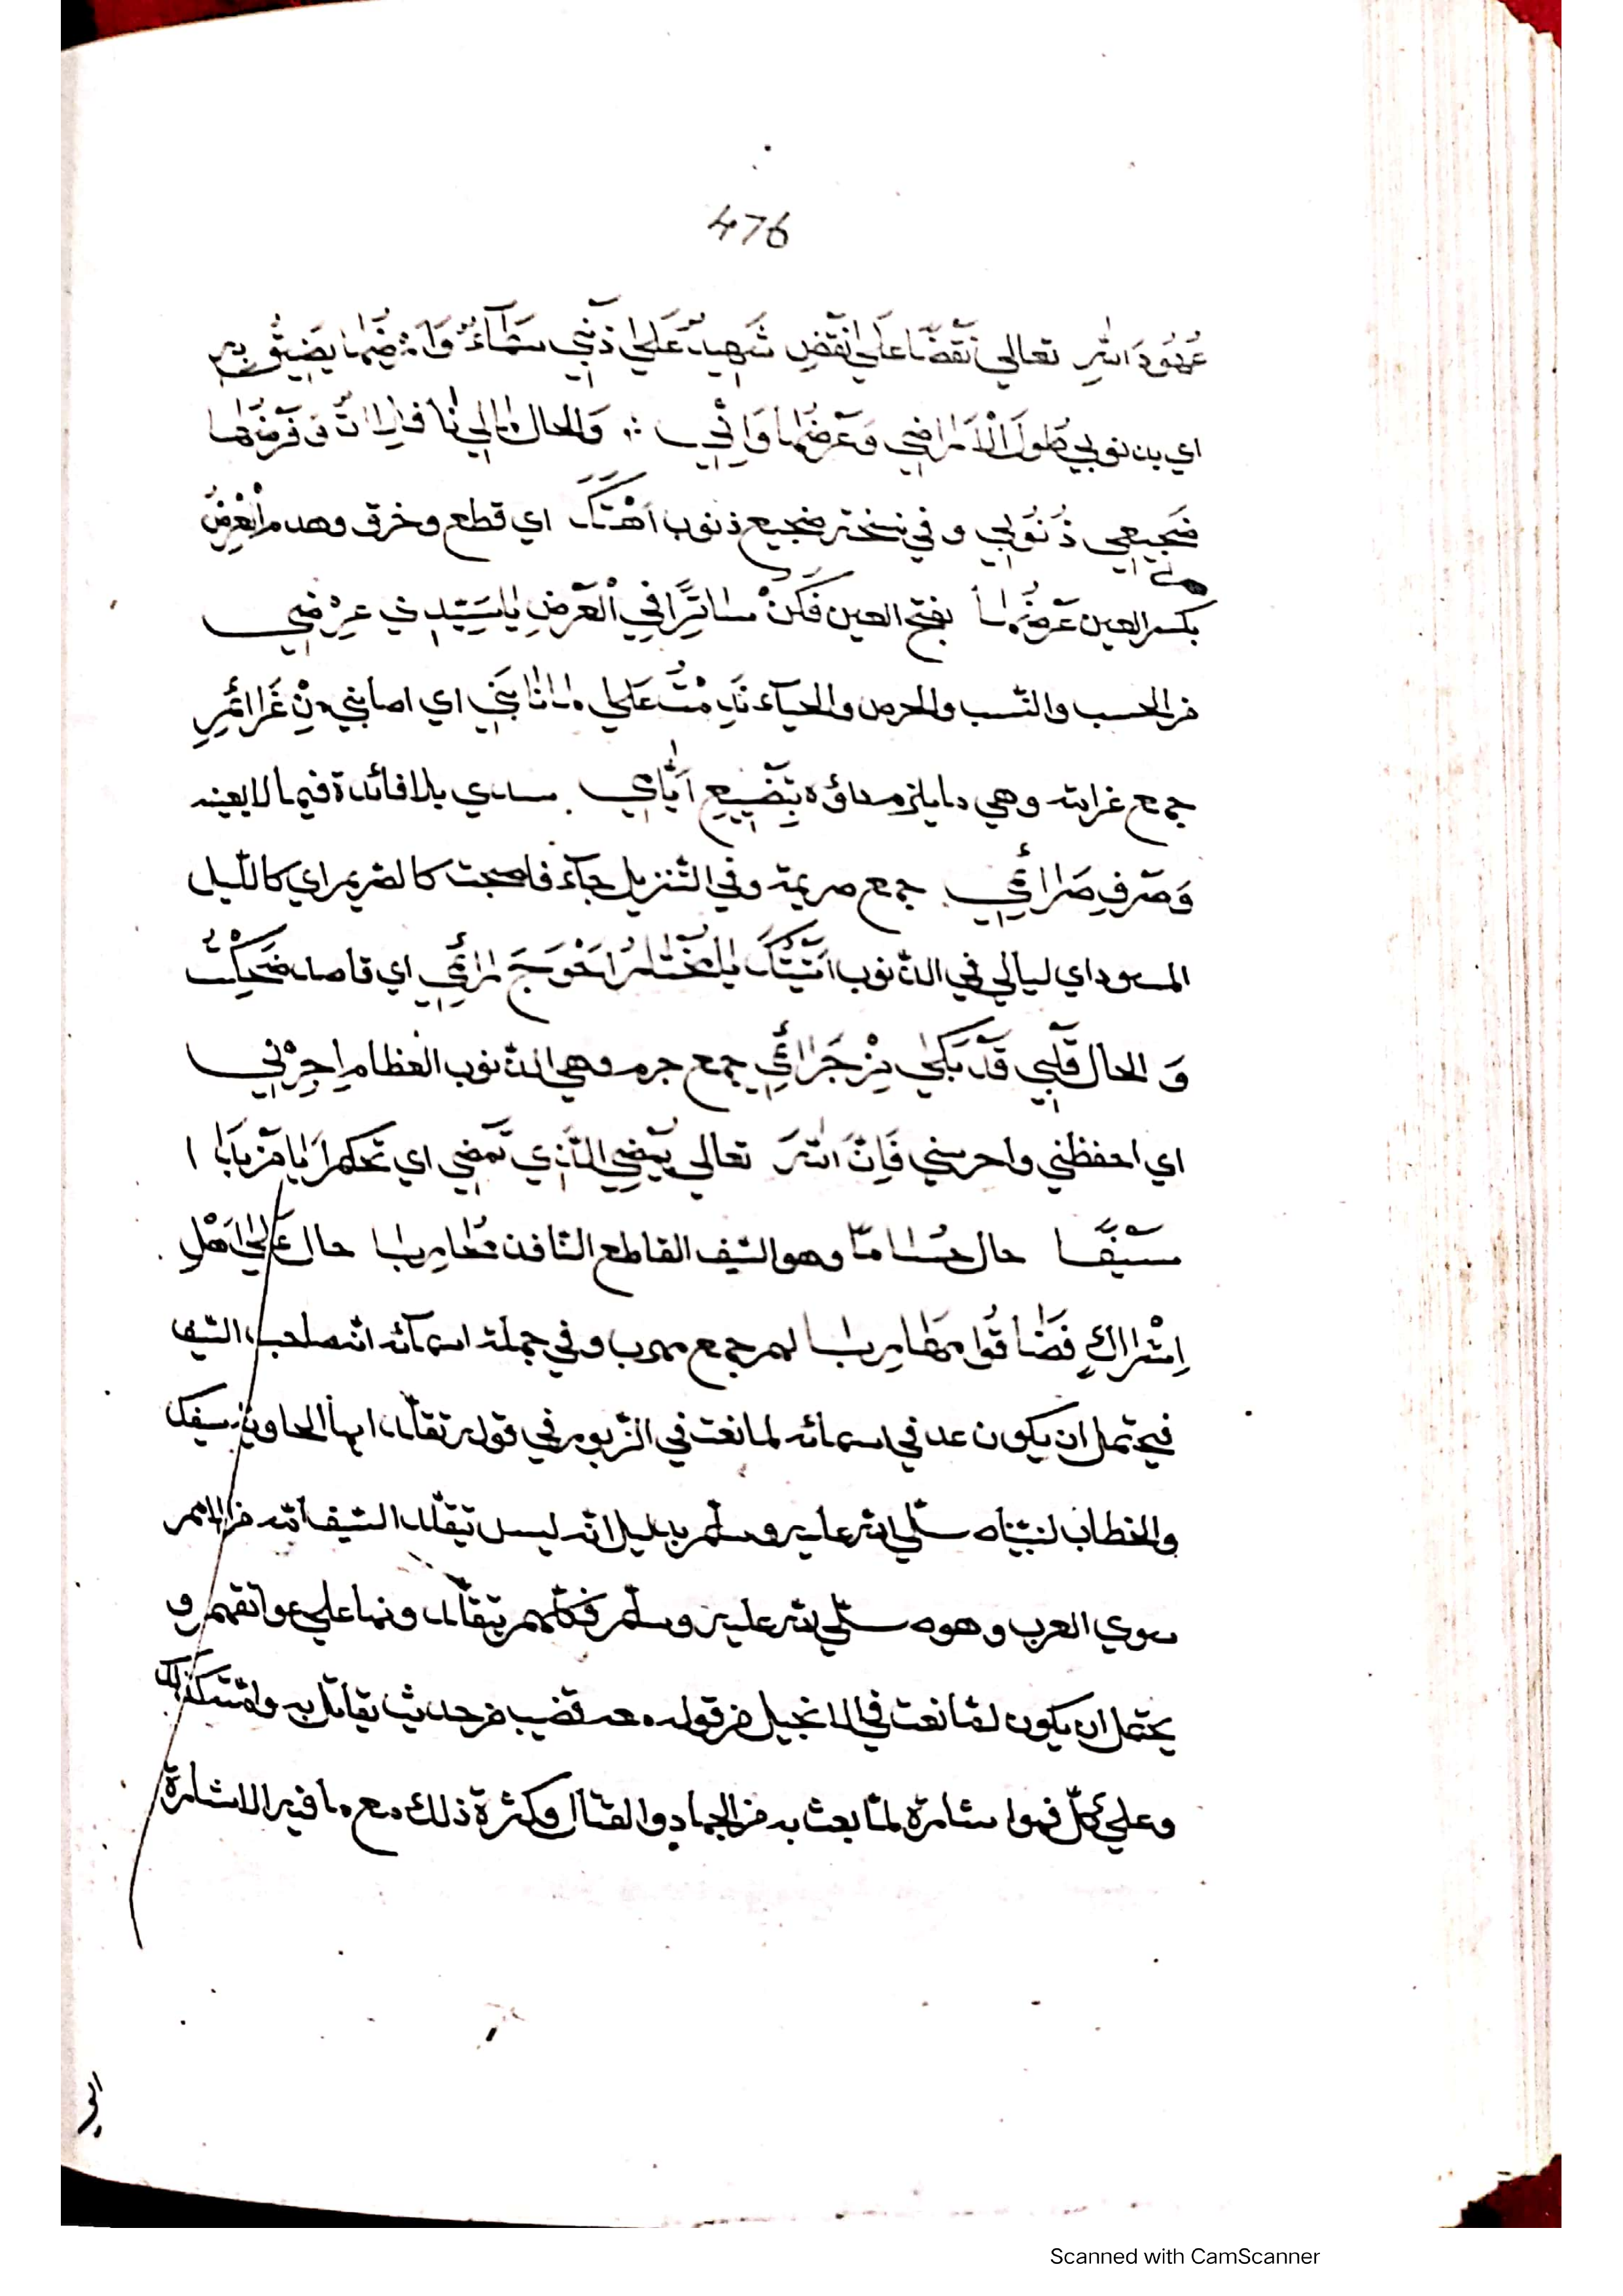 476
عُهُودَ اللهِ تعالي نَقْضًا عَلَي نَقْضِ شَهِيدٌ عَلَي ذَنْبِي سَمَآءٌ وَاَرْضُهَا يَضِيْقُ بِهِ
اي بذنوبي طُولُ الْاَرَاضِي وَعَرْضُهَا وَاِنِّي وَالحال مَالِي نَافِلَاتٌ فَرْضُهَا
ضَجِيعِي ذُنُوبِي وفي نسخة ضجيع ذنوب اَهْتَكَ اي قطع وخرق وهدم الْعِرْضُ
بكسر العين عَرْضُهَا بفتح العين فَكُنْ سَاتِرًا فِي الْعَرْضِ يَا سَيِّدِي عِرْضِي
من الحسب والنّسب والحرص والحيآء نَدِمْتُ عَلَي مَا نَابَنِي اي اصابني مِنْ غَرَائِمِ
جمع غرامة وهي ما يلزم اداؤه بِتَضْيِيعِ اَيَّامِي سدي بلا فائدة فيما لا يعنيه
وَصَرْفِ صَرَائِمِي جمع صريمة وفي التّنزيل جآء فاصبحت كالصّريم اي كاللّيل
المسود اي ليالي في الذّنوب اَتَيْتُكَ يَا مُخْتَارُ اَحْوَجَ رَائِمِ اي قاصد ضَحِكْتُ
وَ الحال قَلْبِي قَدْ بَكَي مِنْ جَرَائِمِي جمع جرم وهي الذّنوب العظام اَجِرْنِي
اي احفظني واحرسني فَاِنَّ اللهَ تعالي يُمْضِي الَّذِي تُمْضِي اي تحكم اَيَا مَنْ بَابَا
سَيْفًا حال حُسَامًا وهو السّيف القاطع النّافذ مُحَارِبًا حال عَلَي اَهْلِ
اِشْرَاكٍ فَضَاقُوا مَهَارِبًا لهم جمع مهرب وفي جملة اسمآئه انّه صاحب السّيف
فيحتمل ان يكون عد في اسمائه لما نعت في الزّبور في قوله تقلّد ايها الحاوي سيفك
والخطاب لنبيّناه صلّي الله عليه وسلّم بدليل انّه ليس تيقلّد السّيف امّة من الامم
سوي العرب وهو صلّي الله عليه وسلّم فكلّهم يتقلّدونها علي عواتقهم و
يحتمل ان يكون لمّا نعت في الانجيل من قوله معه قضيب من حديث يقاتل به وامّته كذلك
وعلي كلّ فهو اشارة لمّا بعث به من الجهاد والقتال وكثرة ذلك مع ما فيه الاشارة
Scanned with CamScanner